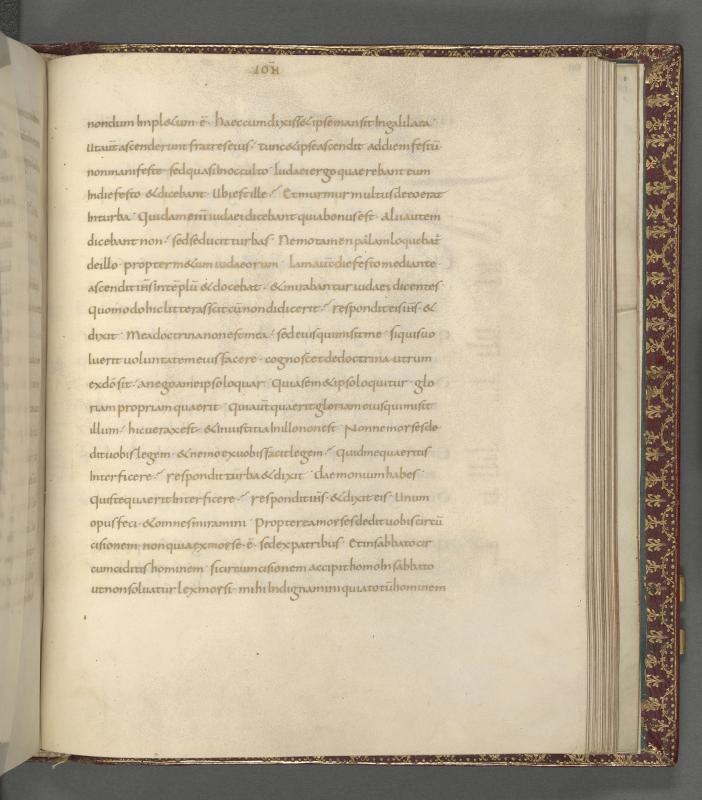 IOH̄
nondum Impl&um ē· haec cum dixiss& ipse mansit In galilaea·
Ut aut̄ ascenderunt fratres eius· tunc & ipse ascendit ad diem festū
non manifeste sed quasi In occulto· Iudaei ergo quaerebant eum
Indie festo & dicebant· Ubi est ille· Et murmur multus de eo erat
In turba· Quidam enī iudaei dicebant quia bonus est· Alii autem
dicebant non· sed seducit turbas· Nemo tamen palam loquebat̄
de illo· propter m&um iudaeorum· Iam aut̄ die festo mediante·
ascendit ih̄s in tēplū & docebat· & mirabantur iudaei dicentes·
quomodo hic litteras scit cū non didicerit· respondit eis ih̄s &
dixit· Mea doctrina non est mea· sed eius qui misit me· siquis uo
luerit uoluntatem eius facere· cognosc& de doctrina utrum
ex dō sit· an ego a me ipso loquar· Qui a sem&ipso loquitur· glo
riam propriam quaerit· Qui aut̄ quaerit gloriam eius qui misit
illum· hic uerax est· & Iniustitia In illo non est· Nonne moyses de
dit uobis legem· & nemo ex uobis facit legem· Quid me quaeritis
Interficere· respondit turba & dixit· daemonium habes·
Quis te quaerit Interficere· respondit ih̄s· & dixit eis· Unum
opus feci· & omnes miramini· Propterea moyses dedit uobis circū
cisionem· non quia ex moyse· ē· sed ex patribus· Et in sabbato cir
cumciditis hominem· si circumcisionem accipit homo In sabbato
ut non soluatur lex moysi· mihi Indignamini quia totū hominem